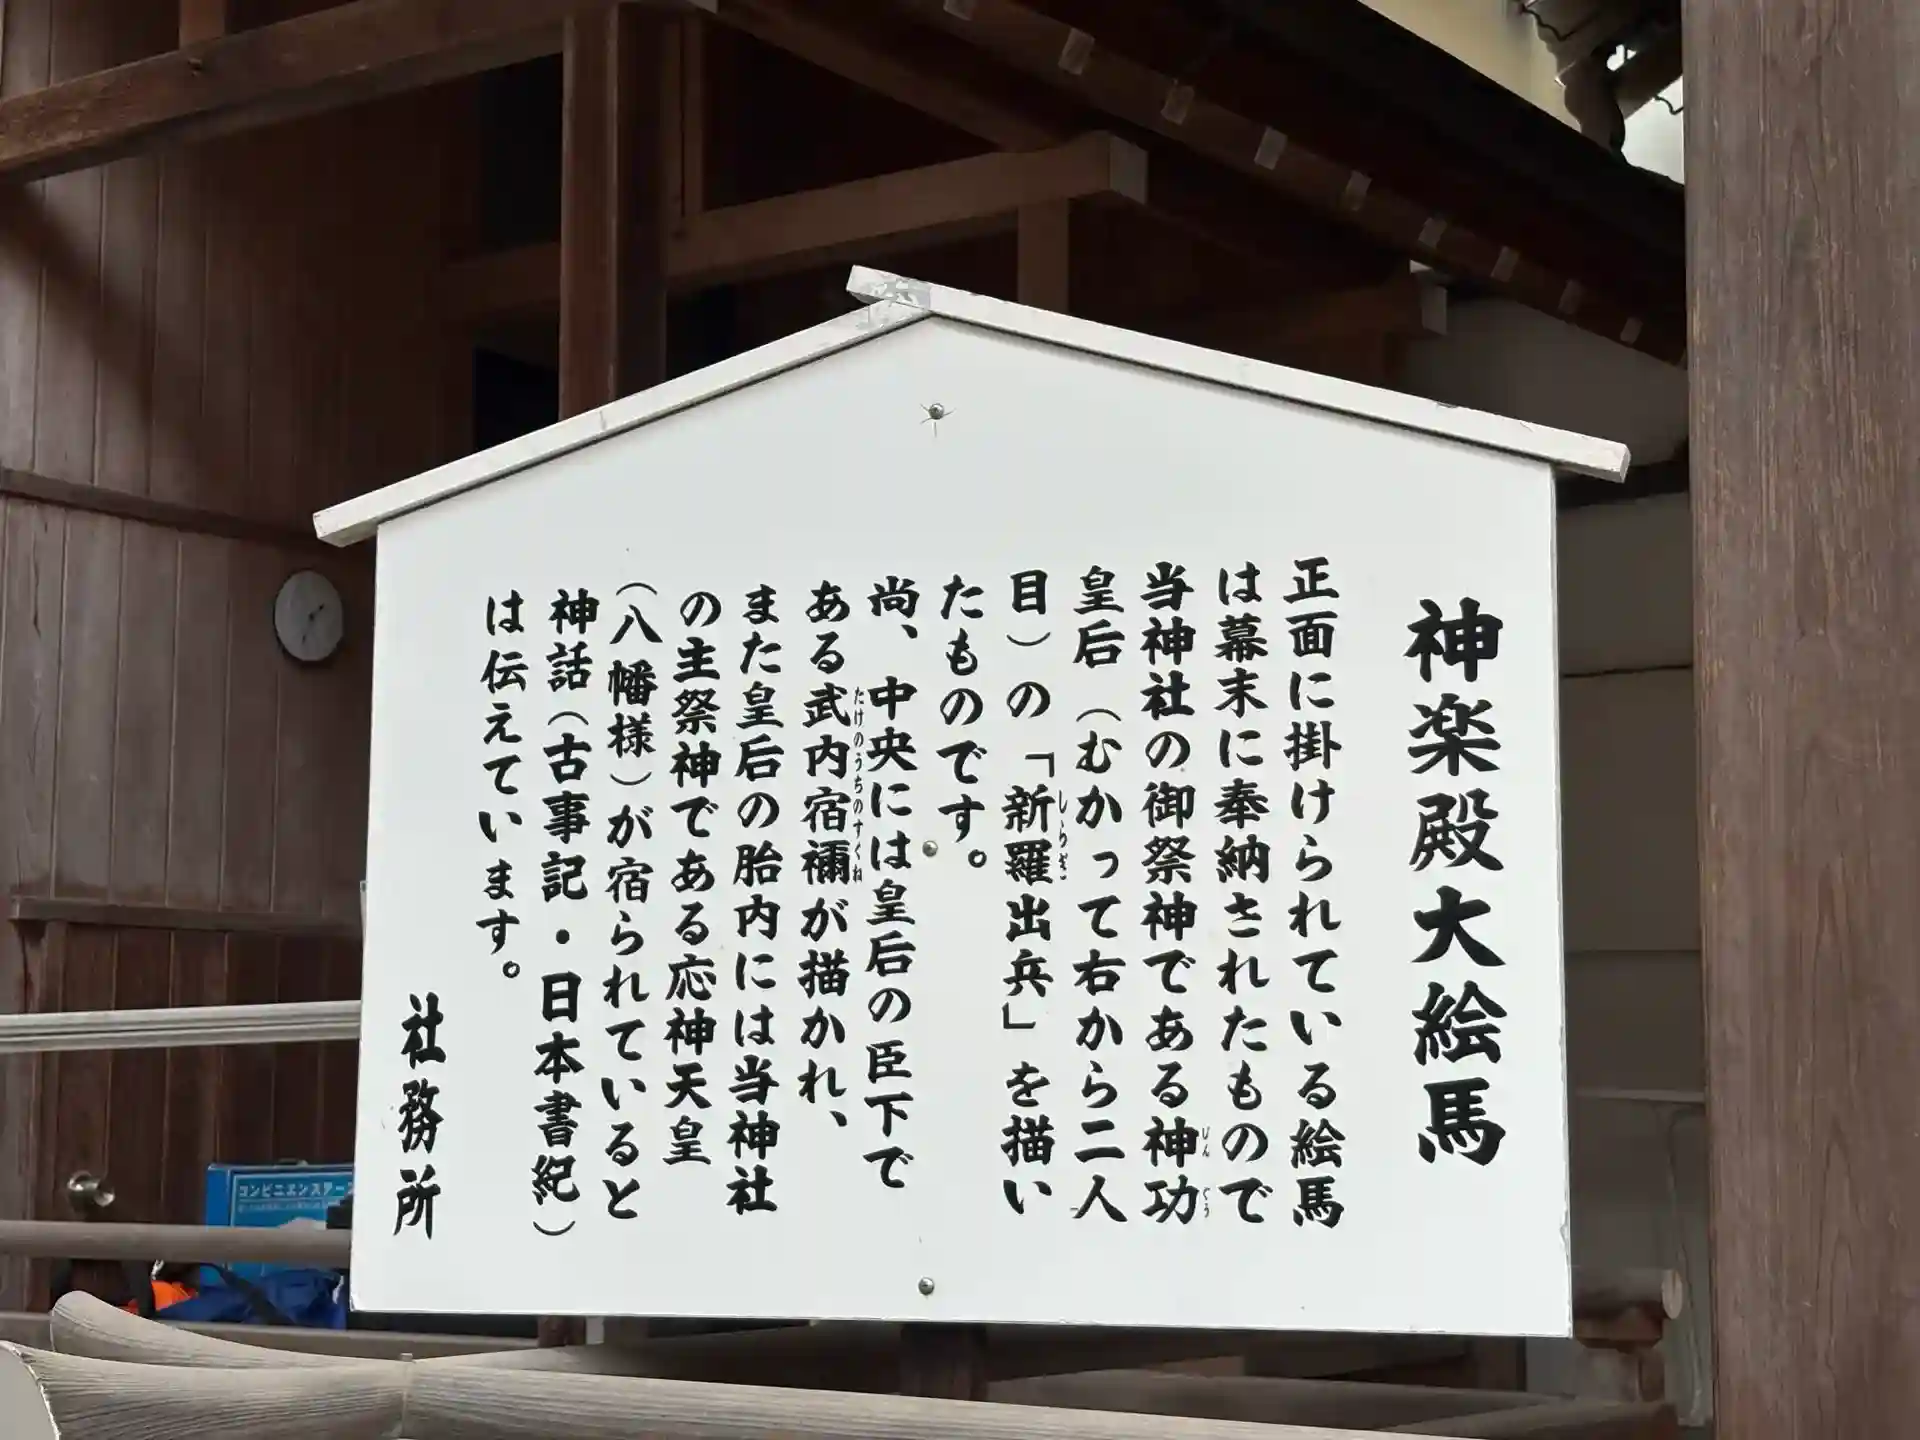 神楽殿大絵馬
正面に掛けられている絵馬
は幕末に奉納されたもので
当神社の御祭神である神功
じんぐう
皇后（むかって右から二人
目）の「新羅出兵」を描い
しらぎ
たものです。
尚、中央には皇后の臣下で
ある武内宿禰が描かれ、
たけのうちのすくね
また皇后の胎内には当神社
の主祭神である応神天皇
（八幡様）が宿られていると
神話（古事記・日本書紀）
は伝えています。
社務所
コンビニエンスアーン